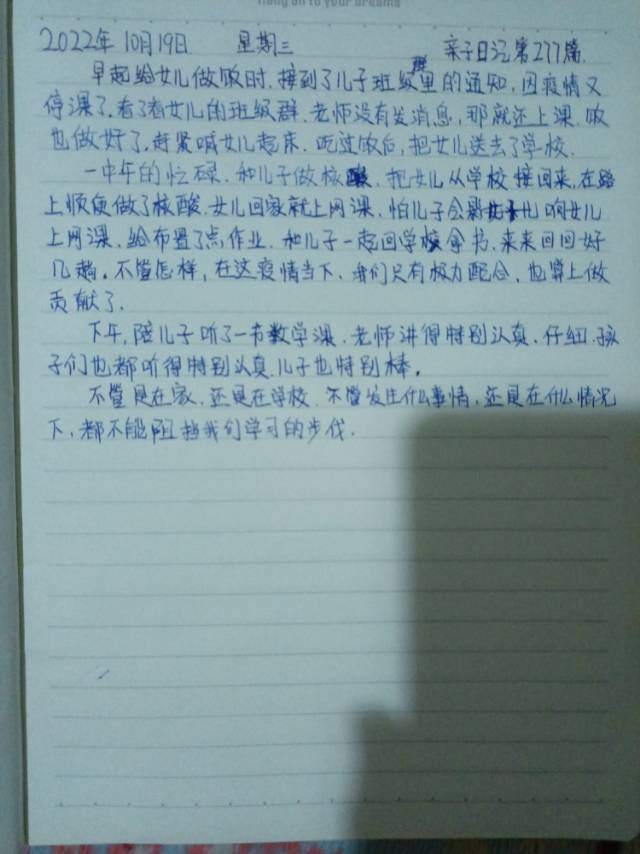 Hang on to your dreams
2022年10月19日 星期三 亲子日记第277篇
早起给女儿做饭时,接到了儿子班级群里的通知,因疫情又
停课了.看了看女儿的班级群.老师没有发消息,那就还上课.饭
也做好了.赶紧喊女儿起床.吃过饭后,把女儿送去了学校.
一中午的忙碌.和儿子做核酸.把女儿从学校接回来,在路
上顺便做了核酸.女儿回家就上网课.怕儿子会影响女儿
上网课.给布置了点作业.和儿子一起回学校拿书.来来回回好
几趟.不管怎样,在这疫情当下.我们只有极力配合,也算上做
贡献了.
下午,陪儿子听了一节数学课.老师讲得特别认真.仔细.孩
子们也都听得特别认真.儿子也特别棒。
不管是在家.还是在学校.不管发生什么事情,还是在什么情况
下,都不能阻挡我们学习的步伐.